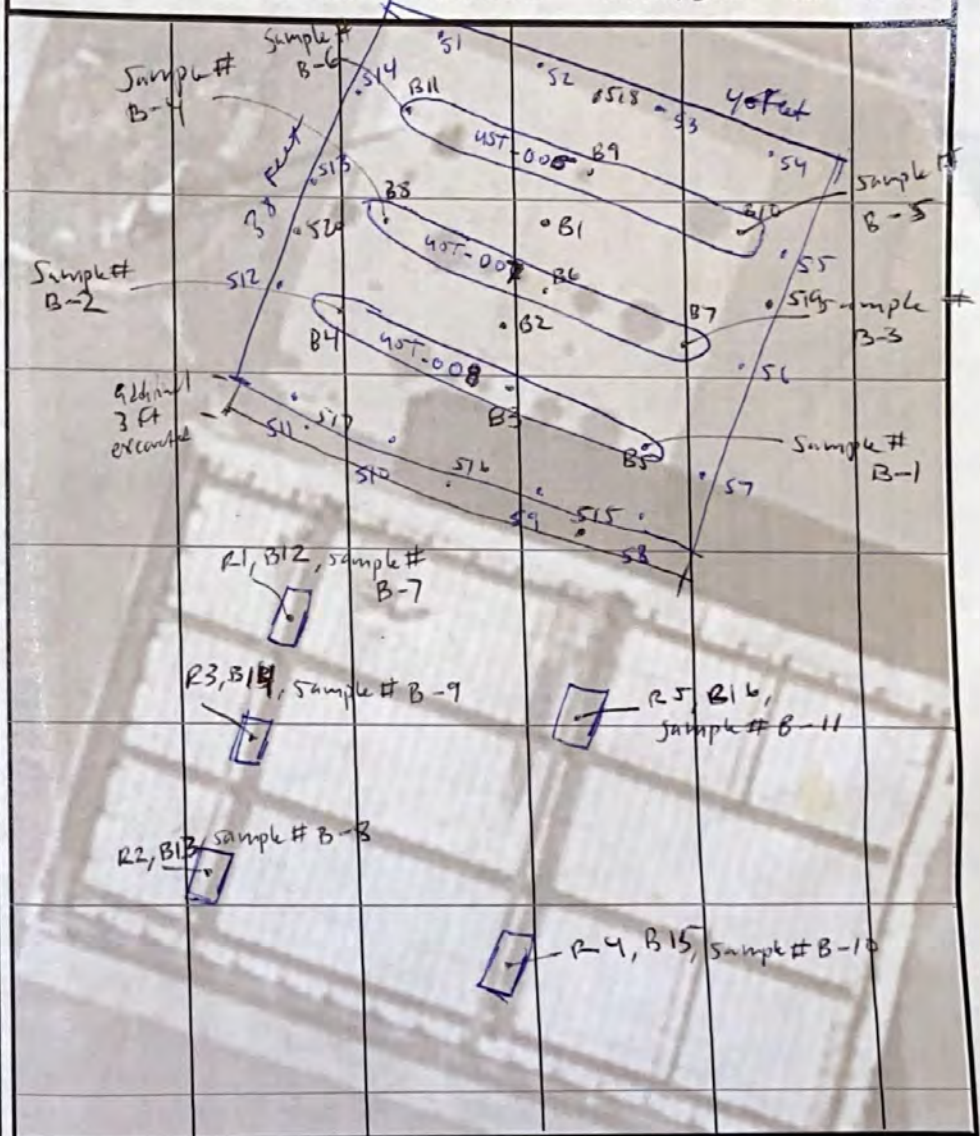 Sample #
B-6
Sample #
B-4
S1
S2
S18
S3
40 Feet
S4
S14
B11
UST-006
B9
B10
Sample #
B-5
38 Feet
S13
B8
B1
S20
S55
UST-007
B6
S12
Sample #
B-2
B7
S19
Sample
#
B-3
B2
B4
UST-008
S6
additional
3 Ft
excavated
S11
S17
B3
B5
Sample #
B-1
S10
S16
S7
S9
S15
S8
R1, B12, Sample #
B-7
R3, B14, Sample # B-9
R5, B16,
Sample # B-11
R2, B13, Sample # B-8
R-4, B15, Sample # B-10